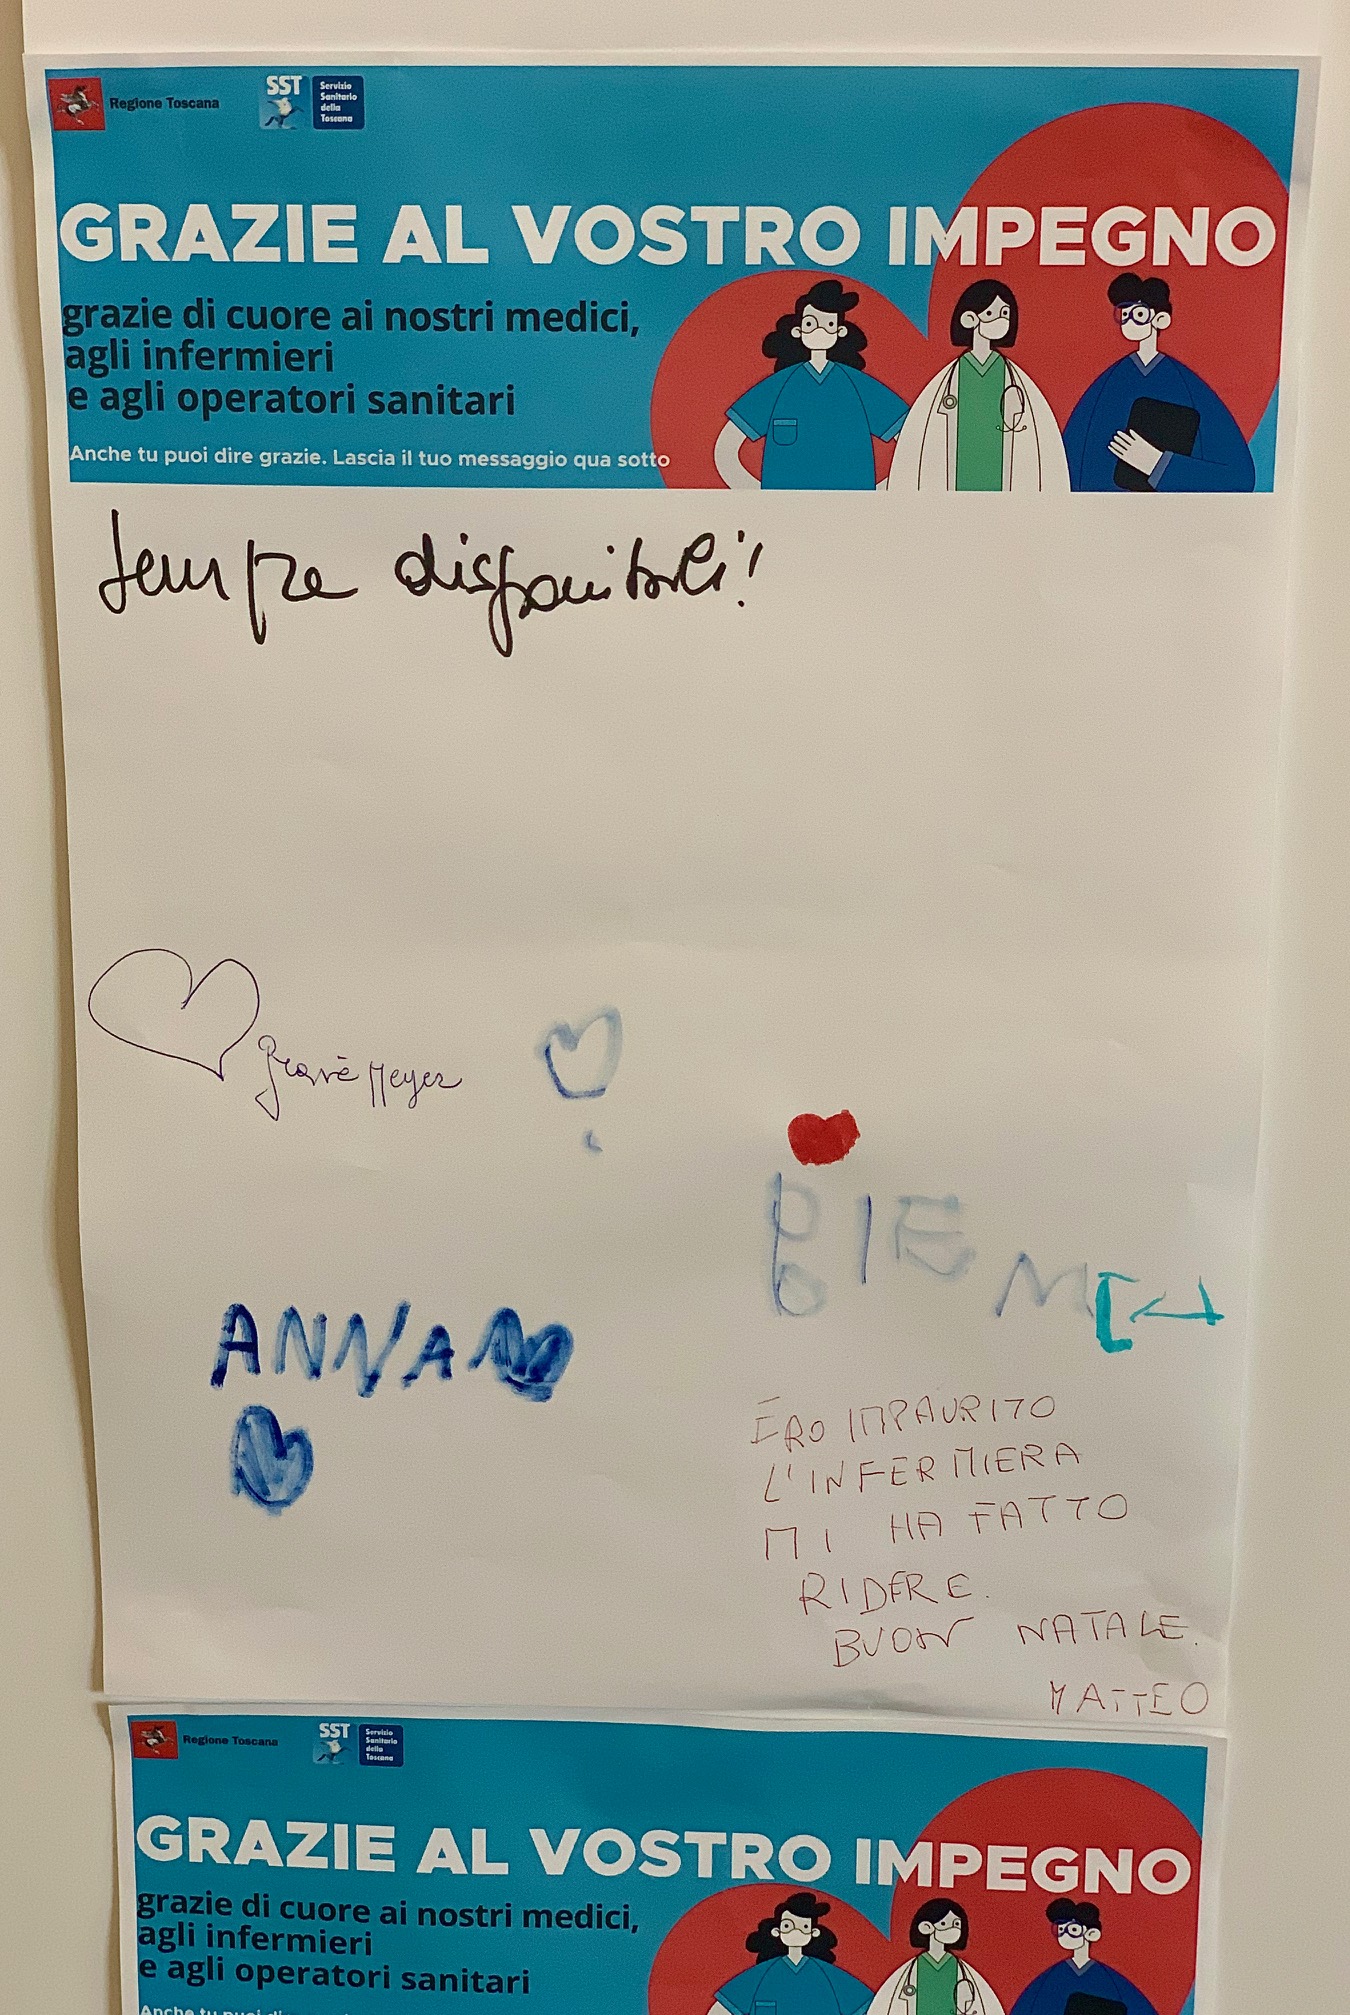 Regione Toscana
SST
Servizio
Sanitario
della
Toscana
GRAZIE AL VOSTRO IMPEGNO
grazie di cuore ai nostri medici,
agli infermieri
e agli operatori sanitari
Anche tu puoi dire grazie. Lascia il tuo messaggio qua sotto
Sempre disponibili!
Meyer
ANNA
ERO IMPAURITO
L'INFERMIERA
MI HA FATTO
RIDERE.
BUON NATALE.
MATTEO
Regione Toscana
SST
Servizio
Sanitario
della
Toscana
GRAZIE AL VOSTRO IMPEGNO
grazie di cuore ai nostri medici,
agli infermieri
e agli operatori sanitari
Anche tu puoi